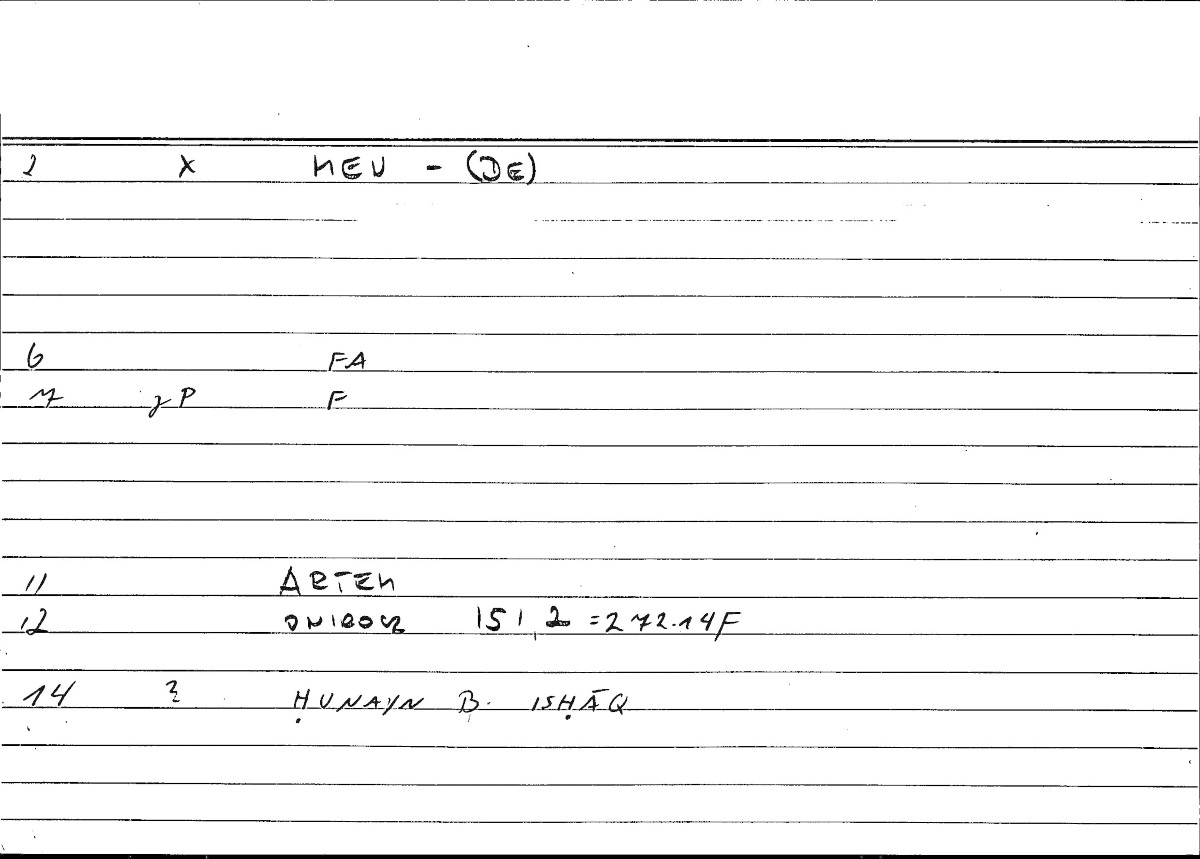 2 X MEU - (DE)
6 FA
7 γP F
11 ARTEM
12 ONIBOCR 151,2 = 272.14F
14 2 ḤUNAYN B. ISḤĀQ